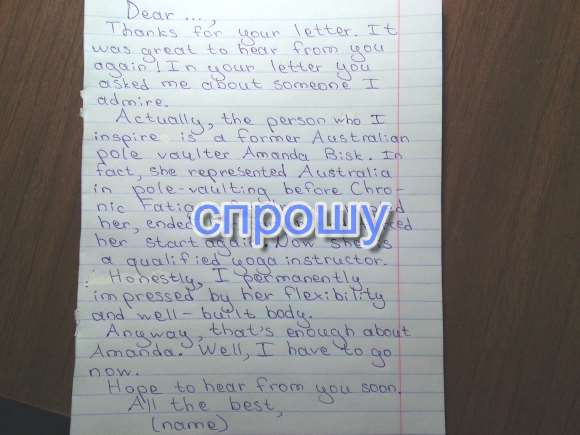 Dear ...,
Thanks for your letter. It
was great to hear from you
again! In your letter you
asked me about someone I
admire.
Actually, the person who I
inspire is a former Australian
pole vaulter Amanda Bisk. In
fact, she represented Australia
in pole-vaulting before Chro-
nic
her,
спрошу
her start again. Now she's
a qualified yoga instructor.
Honestly, I permanently
impressed by her flexibility
and well-built body.
Anyway, that's enough about
Amanda. Well, I have to go
now.
Hope to hear from you soon.
All the best,
(name)